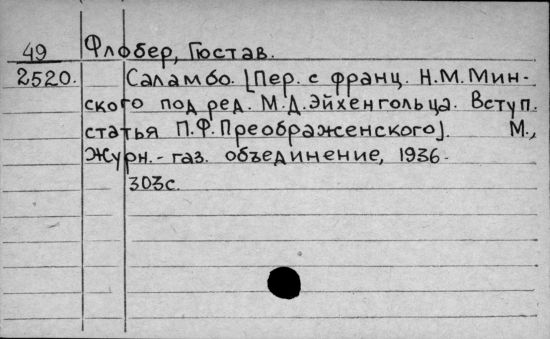 49 Флобер, Гюстав.
2520. Саламбо. [Пер. с франц. Н.М. Мин-
ского под ред. М.Д. Эйхенгольца. Вступ.
статья П.Ф. Преображенского]. М.,
Журн.-газ. объединение, 1936.
303с.